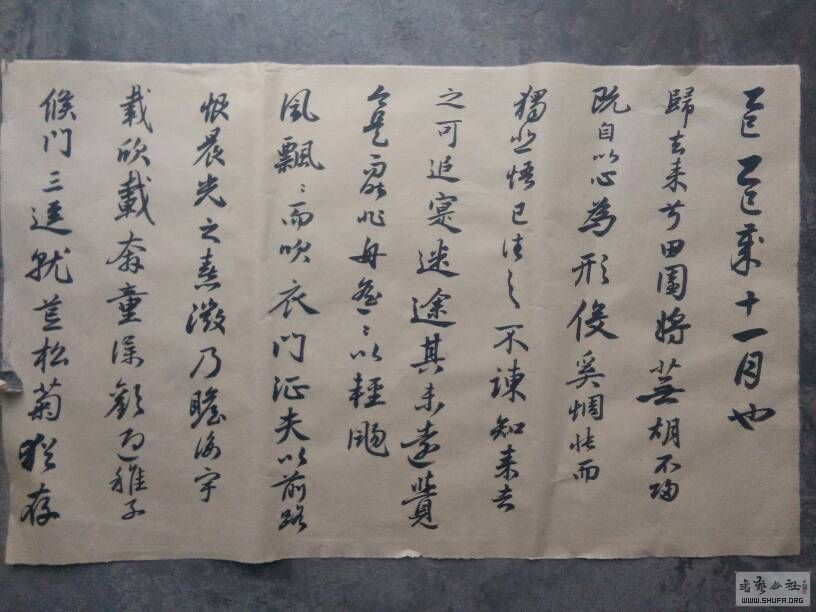 乙巳乙巳歲十一月也
歸去来兮田園将蕪胡不歸
既自以心為形役奚惆悵而
獨悲悟已往之不諫知来者
之可追寔迷途其未遠覺
今是昨非舟遥〻以輕颺
風飄〻而吹衣問征夫以前路
恨晨光之熹微乃瞻衡宇
載欣載奔童僕歡迎稚子
候門三逕就荒松菊猶存
書藝公社
WWW.SHUFA.ORG